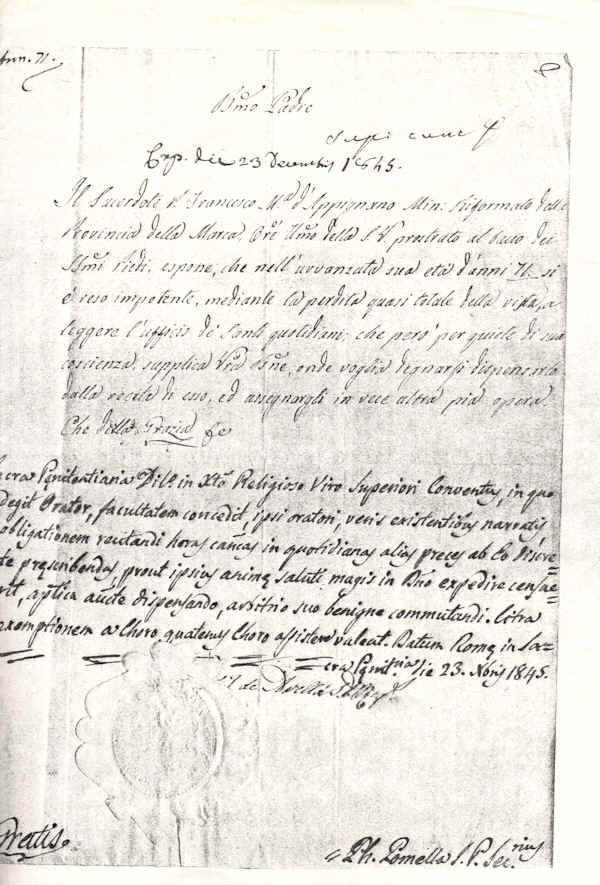 Ann. 71.
Bmo Padre
Exp. die 23 Decembris 1845.
Il Sacerdote P. Francesco Ma d'Appignano Min: Riformato della
Provincia della Marca, Ore Umo della S.V. prostrato al bacio dei
SSmi Piedi, espone, che nell'avvanzata sua età d'anni 71 si
è reso impotente, mediante la perdita quasi totale della vista, a
leggere l'ufficio de' Santi quotidiani; che però per quiete di sua
coscienza, supplica Vra Bne, onde voglia degnarsi dispensarlo
dalla recita di esso, ed assegnargli in vece altra pia opera
Che della Grazia &c
Sacra Penitentiaria Dilo in Xto Religioso Viro Superiori Conventus, in quo
degit Orator, facultatem concedit, ipsi oratori, veris existentibus narratis
obligationem recitandi horas cancas in quotidianas alias preces ab Eo discre-
te pręscribendas, prout ipsius animę saluti magis in Dno expedire censue-
rit, aplica aucte dispensando, arbitrio suo benigne commutandi. Citra
exemptionem a Choro, quatenus Choro assistere valeat. Datum Romę in Sa-
cra Pęnitria die 23. Xbris 1845.
Gratis.
Ph. Pomella S. P. Sec.rius